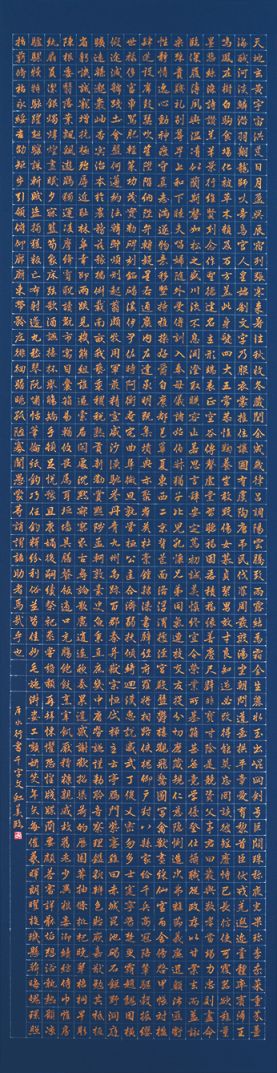 天地玄黃宇宙洪荒日月盈昃辰宿列張寒來暑往秋收冬藏閏餘成歲律呂調陽雲騰致雨露結為霜金生麗水玉出崑岡劍號巨闕珠稱夜光果珍李柰菜重芥薑
海鹹河淡鱗潛羽翔龍師火帝鳥官人皇始制文字乃服衣裳推位讓國有虞陶唐弔民伐罪周發殷湯坐朝問道垂拱平章愛育黎首臣伏戎羌遐邇壹體率賓歸王
鳴鳳在樹白駒食場化被草木賴及萬方蓋此身髮四大五常恭惟鞠養豈敢毀傷女慕貞絜男效才良知過必改得能莫忘罔談彼短靡恃己長信使可覆器欲難量
墨悲絲染詩讚羔羊景行維賢剋念作聖德建名立形端表正空谷傳聲虛堂習聽禍因惡積福緣善慶尺璧非寶寸陰是競資父事君曰嚴與敬孝當竭力忠則盡命
臨深履薄夙興溫凊似蘭斯馨如松之盛川流不息淵澄取映容止若思言辭安定篤初誠美慎終宜令榮業所基籍甚無竟學優登仕攝職從政存以甘棠去而益詠
樂殊貴賤禮別尊卑上和下睦夫唱婦隨外受傅訓入奉母儀諸姑伯叔猶子比兒孔懷兄弟同氣連枝交友投分切磨箴規仁慈隱惻造次弗離節義廉退顛沛匪虧
性靜情逸心動神疲守真志滿逐物意移堅持雅操好爵自縻都邑華夏東西二京背邙面洛浮渭據涇宮殿盤鬱樓觀飛驚圖寫禽獸畫綵仙靈丙舍傍啓甲帳對楹
肆筵設席鼓瑟吹笙陞階納陛弁轉疑星右通廣內左達承明既集墳典亦聚群英杜稾鍾隸漆書壁經府羅將相路俠槐卿戶封八縣家給千兵高冠陪輦驅轂振纓
世祿侈富車駕肥輕策功茂實勒碑刻銘磻溪伊尹佐時阿衡奄宅曲阜微旦孰營桓公匡合濟弱扶傾綺迴漢惠說感武丁俊乂密勿多士寔寧晉楚更霸趙魏困橫
假途滅虢踐土會盟何遵約法韓弊煩刑起翦頗牧用軍最精宣威沙漠馳譽丹青九州禹跡百郡秦并嶽宗恒岱禪主云亭雁門紫塞雞田赤城昆池碣石鉅野洞庭
曠遠緜邈巖岫杳冥治本於農務茲稼穡俶載南畝我藝黍稷稅熟貢新勸賞黜陟孟軻敦素史魚秉直庶幾中庸勞謙謹勑聆音察理鑑貌辨色貽厥嘉猷勉其祗植
省躬譏誡寵增抗極殆辱近恥林皋幸即兩疏見機解組誰逼索居閑處沉默寂寥求古尋論散慮逍遙欣奏累遣慼謝歡招渠荷的歷園莽抽條枇杷晚翠梧桐早彫
陳根委翳落葉飄颻遊鵾獨運凌摩絳霄耽讀翫市寓目囊箱易輶攸畏屬耳垣牆具膳飡飯適口充腸飽飫烹宰飢厭糟糠親戚故舊老少異糧妾御績紡侍巾帷房
紈扇圓潔銀燭煒煌晝眠夕寐藍筍象床弦歌酒讌接杯舉觴矯手頓足悅豫且康嫡後嗣續祭祀烝嘗稽顙再拜悚懼恐惶牋牒簡要顧答審詳骸垢想浴執熱願涼
驢騾犢特駭躍超驤誅斬賊盜捕獲叛亡布射遼丸嵇琴阮嘯恬筆倫紙鈞巧任釣釋紛利俗並皆佳妙毛施淑姿工顰妍笑年矢每催曦暉朗曜璇璣懸斡晦魄環照
指薪修祜永綏吉劭矩步引領俯仰廊廟束帶矜莊徘徊瞻眺孤陋寡聞愚蒙等誚謂語助者焉哉乎也